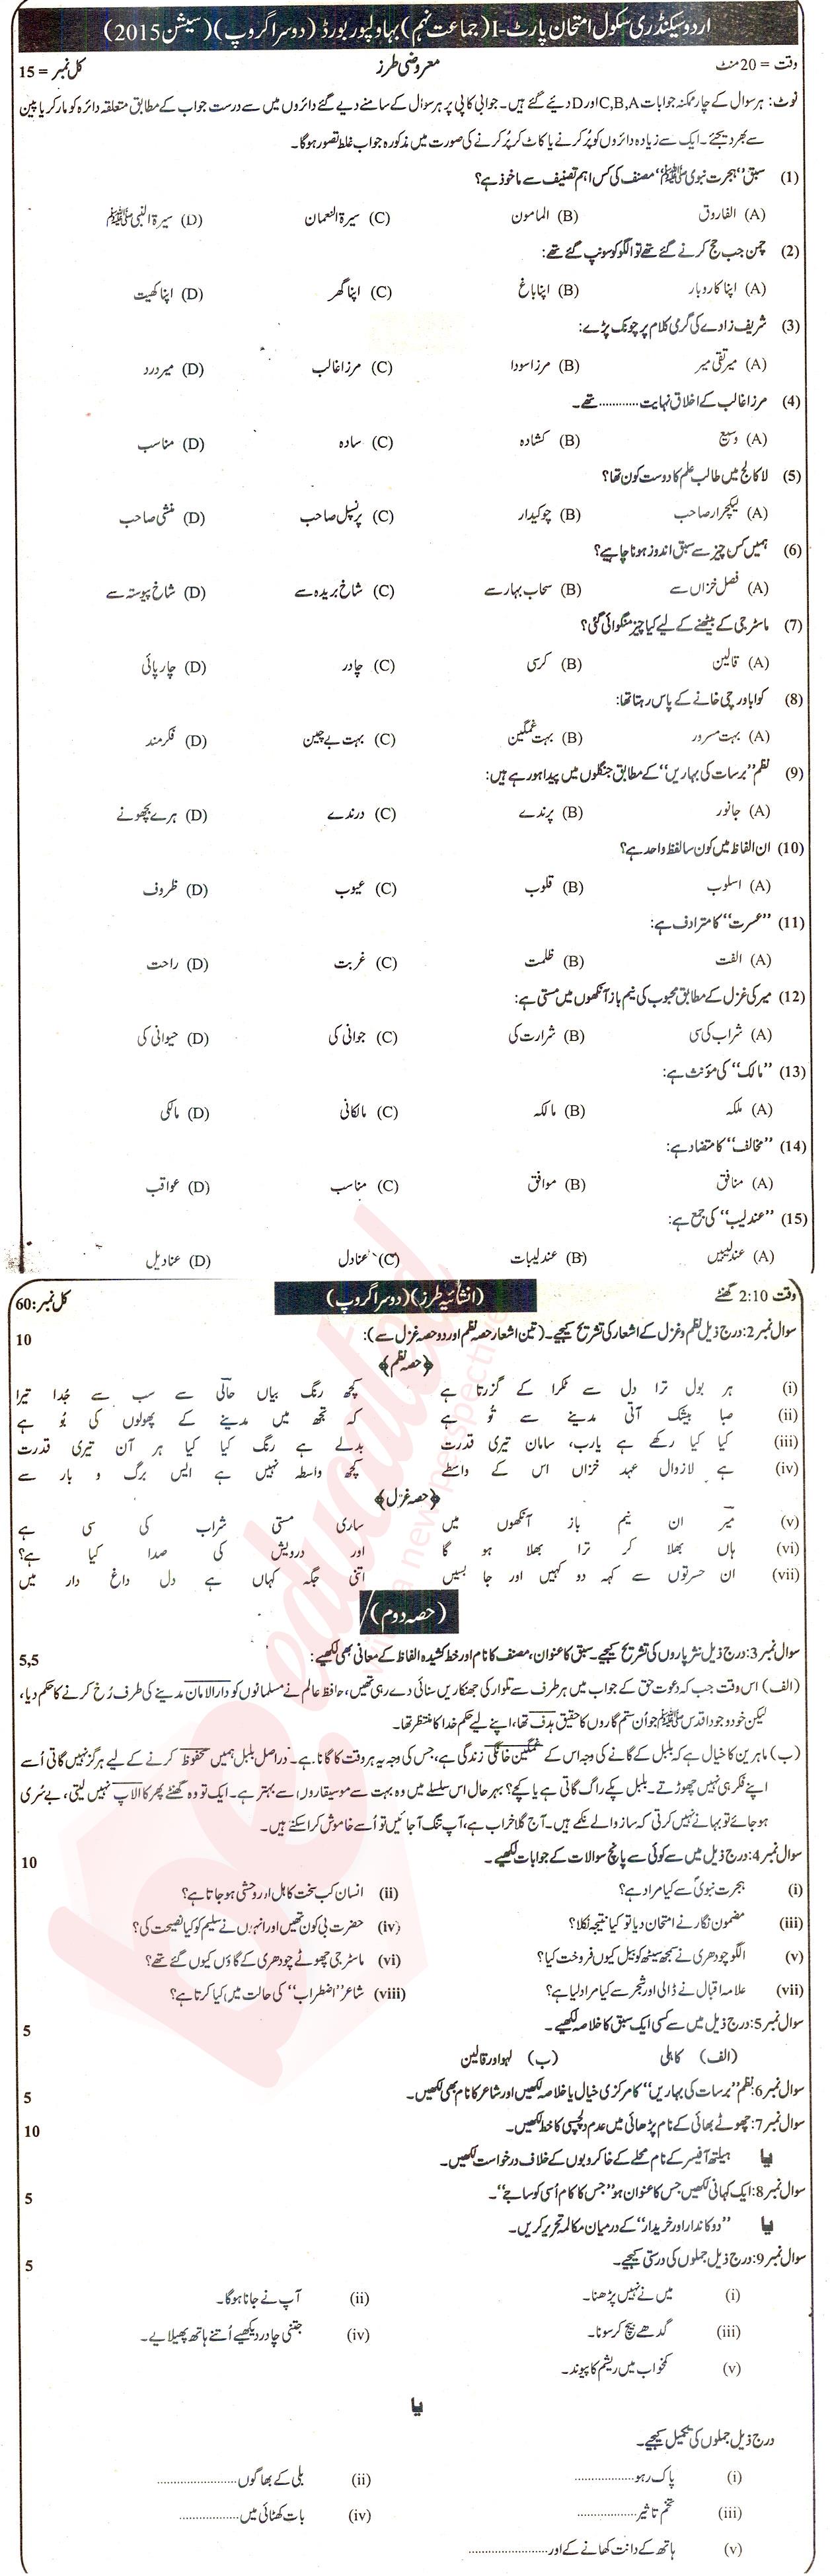 اردو سیکنڈری سکول امتحان پارٹ-I (جماعت نہم) بہاولپور بورڈ (دوسرا گروپ) (سیشن 2015)
وقت = 20 منٹ معروضی طرز کل نمبر = 15
نوٹ: ہر سوال کے چار ممکنہ جوابات C,B,A اور D دیئے گئے ہیں۔ جوابی کاپی پر ہر سوال کے سامنے دیے گئے دائروں میں سے درست جواب کے مطابق متعلقہ دائرہ کو مارکر یا پین
سے بھر دیجئے۔ ایک سے زیادہ دائروں کو پُر کرنے یا کاٹ کر پُر کرنے کی صورت میں مذکورہ جواب غلط تصور ہوگا۔
(1) سبق ”ہجرت نبوی ﷺ“ مصنف کی کس اہم تصنیف سے ماخوذ ہے؟
(A) الفاروق (B) المامون (C) سیرۃ النعمان (D) سیرۃ النبی ﷺ
(2) جمن جب حج کرنے گئے تھے تو الگو کو سونپ گئے تھے:
(A) اپنا کاروبار (B) اپنا باغ (C) اپنا گھر (D) اپنا کھیت
(3) شریف زادے کی گرمی کلام پر چونک پڑے:
(A) میر تقی میر (B) مرزا سودا (C) مرزا غالب (D) میر درد
(4) مرزا غالب کے اخلاق نہایت ............ تھے۔
(A) وسیع (B) کشادہ (C) سادہ (D) مناسب
(5) لا کالج میں طالب علم کا دوست کون تھا؟
(A) لیکچرار صاحب (B) چوکیدار (C) پرنسپل صاحب (D) منشی صاحب
(6) ہمیں کس چیز سے سبق اندوز ہونا چاہیے؟
(A) فصل خزاں سے (B) سحاب بہار سے (C) شاخ بریدہ سے (D) شاخ پیوستہ سے
(7) ماسٹر جی کے بیٹھنے کے لیے کیا چیز منگوائی گئی؟
(A) قالین (B) کرسی (C) چادر (D) چارپائی
(8) کوا باورچی خانے کے پاس رہتا تھا:
(A) بہت مسرور (B) بہت غمگین (C) بہت بے چین (D) فکر مند
(9) نظم ”برسات کی بہاریں“ کے مطابق جنگلوں میں پیدا ہو رہے ہیں:
(A) جانور (B) پرندے (C) درندے (D) ہرے بچھونے
(10) ان الفاظ میں کون سا لفظ واحد ہے؟
(A) اسلوب (B) قلوب (C) عیوب (D) ظروف
(11) ”عسرت“ کا مترادف ہے:
(A) الفت (B) ظلمت (C) غربت (D) راحت
(12) میر کی غزل کے مطابق محبوب کی نیم باز آنکھوں میں مستی ہے:
(A) شراب کی سی (B) شرارت کی (C) جوانی کی (D) حیوانی کی
(13) ”مالک“ کی مؤنث ہے:
(A) ملکہ (B) مالکہ (C) مالکانی (D) مالکی
(14) ”مخالف“ کا متضاد ہے:
(A) منافق (B) موافق (C) مناسب (D) عواقب
(15) ”عندلیب“ کی جمع ہے:
(A) عندلیبیں (B) عندلیبات (C) عنادل (D) عنادیل
وقت 2:10 گھنٹے (انشائیہ طرز) (دوسرا گروپ) کل نمبر: 60
سوال نمبر 2: درج ذیل نظم و غزل کے اشعار کی تشریح کیجیے۔ (تین اشعار حصہ نظم اور دو حصہ غزل سے): 10
﴿حصہ نظم﴾
(i) ہر بول ترا دل سے ٹکرا کے گزرتا ہے کچھ رنگ بیاں حالی سے سب سے جُدا تیرا
(ii) صبا بیشک آتی مدینے سے تُو ہے کہ تجھ میں مدینے کے پھولوں کی بُو ہے
(iii) کیا کیا رکھے ہے یارب، سامان تیری قدرت بدلے ہے رنگ کیا کیا ہر آن تیری قدرت
(iv) ہے لازوال عہد خزاں اس کے واسطے کچھ واسطہ نہیں ہے اس برگ و بار سے
﴿حصہ غزل﴾
(v) میر ان نیم باز آنکھوں میں ساری مستی شراب کی سی ہے
(vi) ہاں بھلا کر ترا بھلا ہو گا اور درویش کی صدا کیا ہے؟
(vii) ان حسرتوں سے کہہ دو کہیں اور جا بسیں اتنی جگہ کہاں ہے دل داغ دار میں
(حصہ دوم)
سوال نمبر 3: درج ذیل نثر پاروں کی تشریح کیجیے۔ سبق کا عنوان، مصنف کا نام اور خط کشیدہ الفاظ کے معانی بھی لکھیے: 5,5
(الف) اس وقت جب کہ دعوت حق کے جواب میں ہر طرف سے تلوار کی جھنکاریں سنائی دے رہی تھیں، حافظ عالم نے مسلمانوں کو دارالامان مدینے کی طرف رُخ کرنے کا حکم دیا،
لیکن خود وجود اقدس ﷺ جو ان ستم گاروں کا حقیقی ہدف تھا، اپنے لیے حکم خدا کا منتظر تھا۔
(ب) ماہرین کا خیال ہے کہ بلبل کے گانے کی وجہ اس کے غمگین خانگی زندگی ہے، جس کی وجہ یہ ہر وقت کا گانا ہے۔ دراصل بلبل ہمیں محفوظ کرنے کے لیے ہرگز نہیں گاتی اُسے
اپنے فکر ہی نہیں چھوڑتے۔ بلبل پکے راگ گاتی ہے یا کچے؟ بہر حال اس سلسلے میں وہ بہت سے موسیقاروں سے بہتر ہے۔ ایک تو وہ گھنٹے بھر کا الاپ نہیں لیتی، بے سُری
ہو جائے تو بہانے نہیں کرتی کہ ساز والے نکمے ہیں۔ آج گلا خراب ہے، آپ تنگ آ جائیں تو اُسے خاموش کرا سکتے ہیں۔
سوال نمبر 4: درج ذیل میں سے کوئی سے پانچ سوالات کے جوابات لکھیے۔ 10
(i) ہجرت نبوی سے کیا مراد ہے؟ (ii) انسان کب سخت کاہل اور وحشی ہو جاتا ہے؟
(iii) مضمون نگار نے امتحان دیا تو کیا نتیجہ نکلا؟ (iv) حضرت بی کون تھیں اور انہوں نے سلیم کو کیا نصیحت کی؟
(v) الگو چودھری نے سمجھو سیٹھ کو بیل کیوں فروخت کیا؟ (vi) ماسٹر جی چھوٹے چودھری کے گاؤں کیوں گئے تھے؟
(vii) علامہ اقبال نے ڈالی اور شجر سے کیا مراد لیا ہے؟ (viii) شاعر ”اضطراب“ کی حالت میں کیا کرتا ہے؟
سوال نمبر 5: درج ذیل میں سے کسی ایک سبق کا خلاصہ لکھیے۔ 5
(الف) کاہلی (ب) لہو اور قالین
سوال نمبر 6: نظم ”برسات کی بہاریں“ کا مرکزی خیال یا خلاصہ لکھیں اور شاعر کا نام بھی لکھیں۔ 5
سوال نمبر 7: چھوٹے بھائی کے نام پڑھائی میں عدم دلچسپی کا خط لکھیں۔ 10
یا ہیلتھ آفیسر کے نام محلے کے خاکروبوں کے خلاف درخواست لکھیں۔
سوال نمبر 8: ایک کہانی لکھیں جس کا عنوان ہو ”جس کا کام اُسی کو ساجے“۔ 5
یا ”دوکاندار اور خریدار“ کے درمیان مکالمہ تحریر کریں۔
سوال نمبر 9: درج ذیل جملوں کی درستی کیجیے۔ 5
(i) میں نے نہیں پڑھنا۔ (ii) آپ نے جانا ہوگا۔
(iii) گدھے بیچ کر سونا۔ (iv) جتنی چادر دیکھیے اُتنے ہاتھ پھیلائیے۔
(v) کمخواب میں ریشم کا پیوند۔
یا
درج ذیل جملوں کی تکمیل کیجیے۔
(i) پاک رہو .................. (ii) بلی کے بھاگوں ..................
(iii) تخم تاثیر .................. (iv) بات کھٹائی میں ..................
(v) ہاتھ کے دانت کھانے کے اور ..................